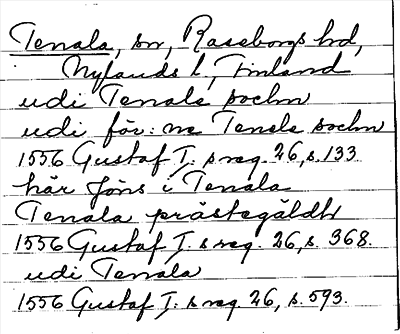 Tenala, sn, Raseborgs hd,
Nylands l, Finland
udi Tenala sochn
udi för:ne Tenala sochn
1556 Gustaf I:s reg. 26, s. 133
här Jöns i Tenala
Tenala prästegäldh
1556 Gustaf I:s reg. 26, s. 368.
udi Tenala
1556 Gustaf I:s reg. 26, s. 593.